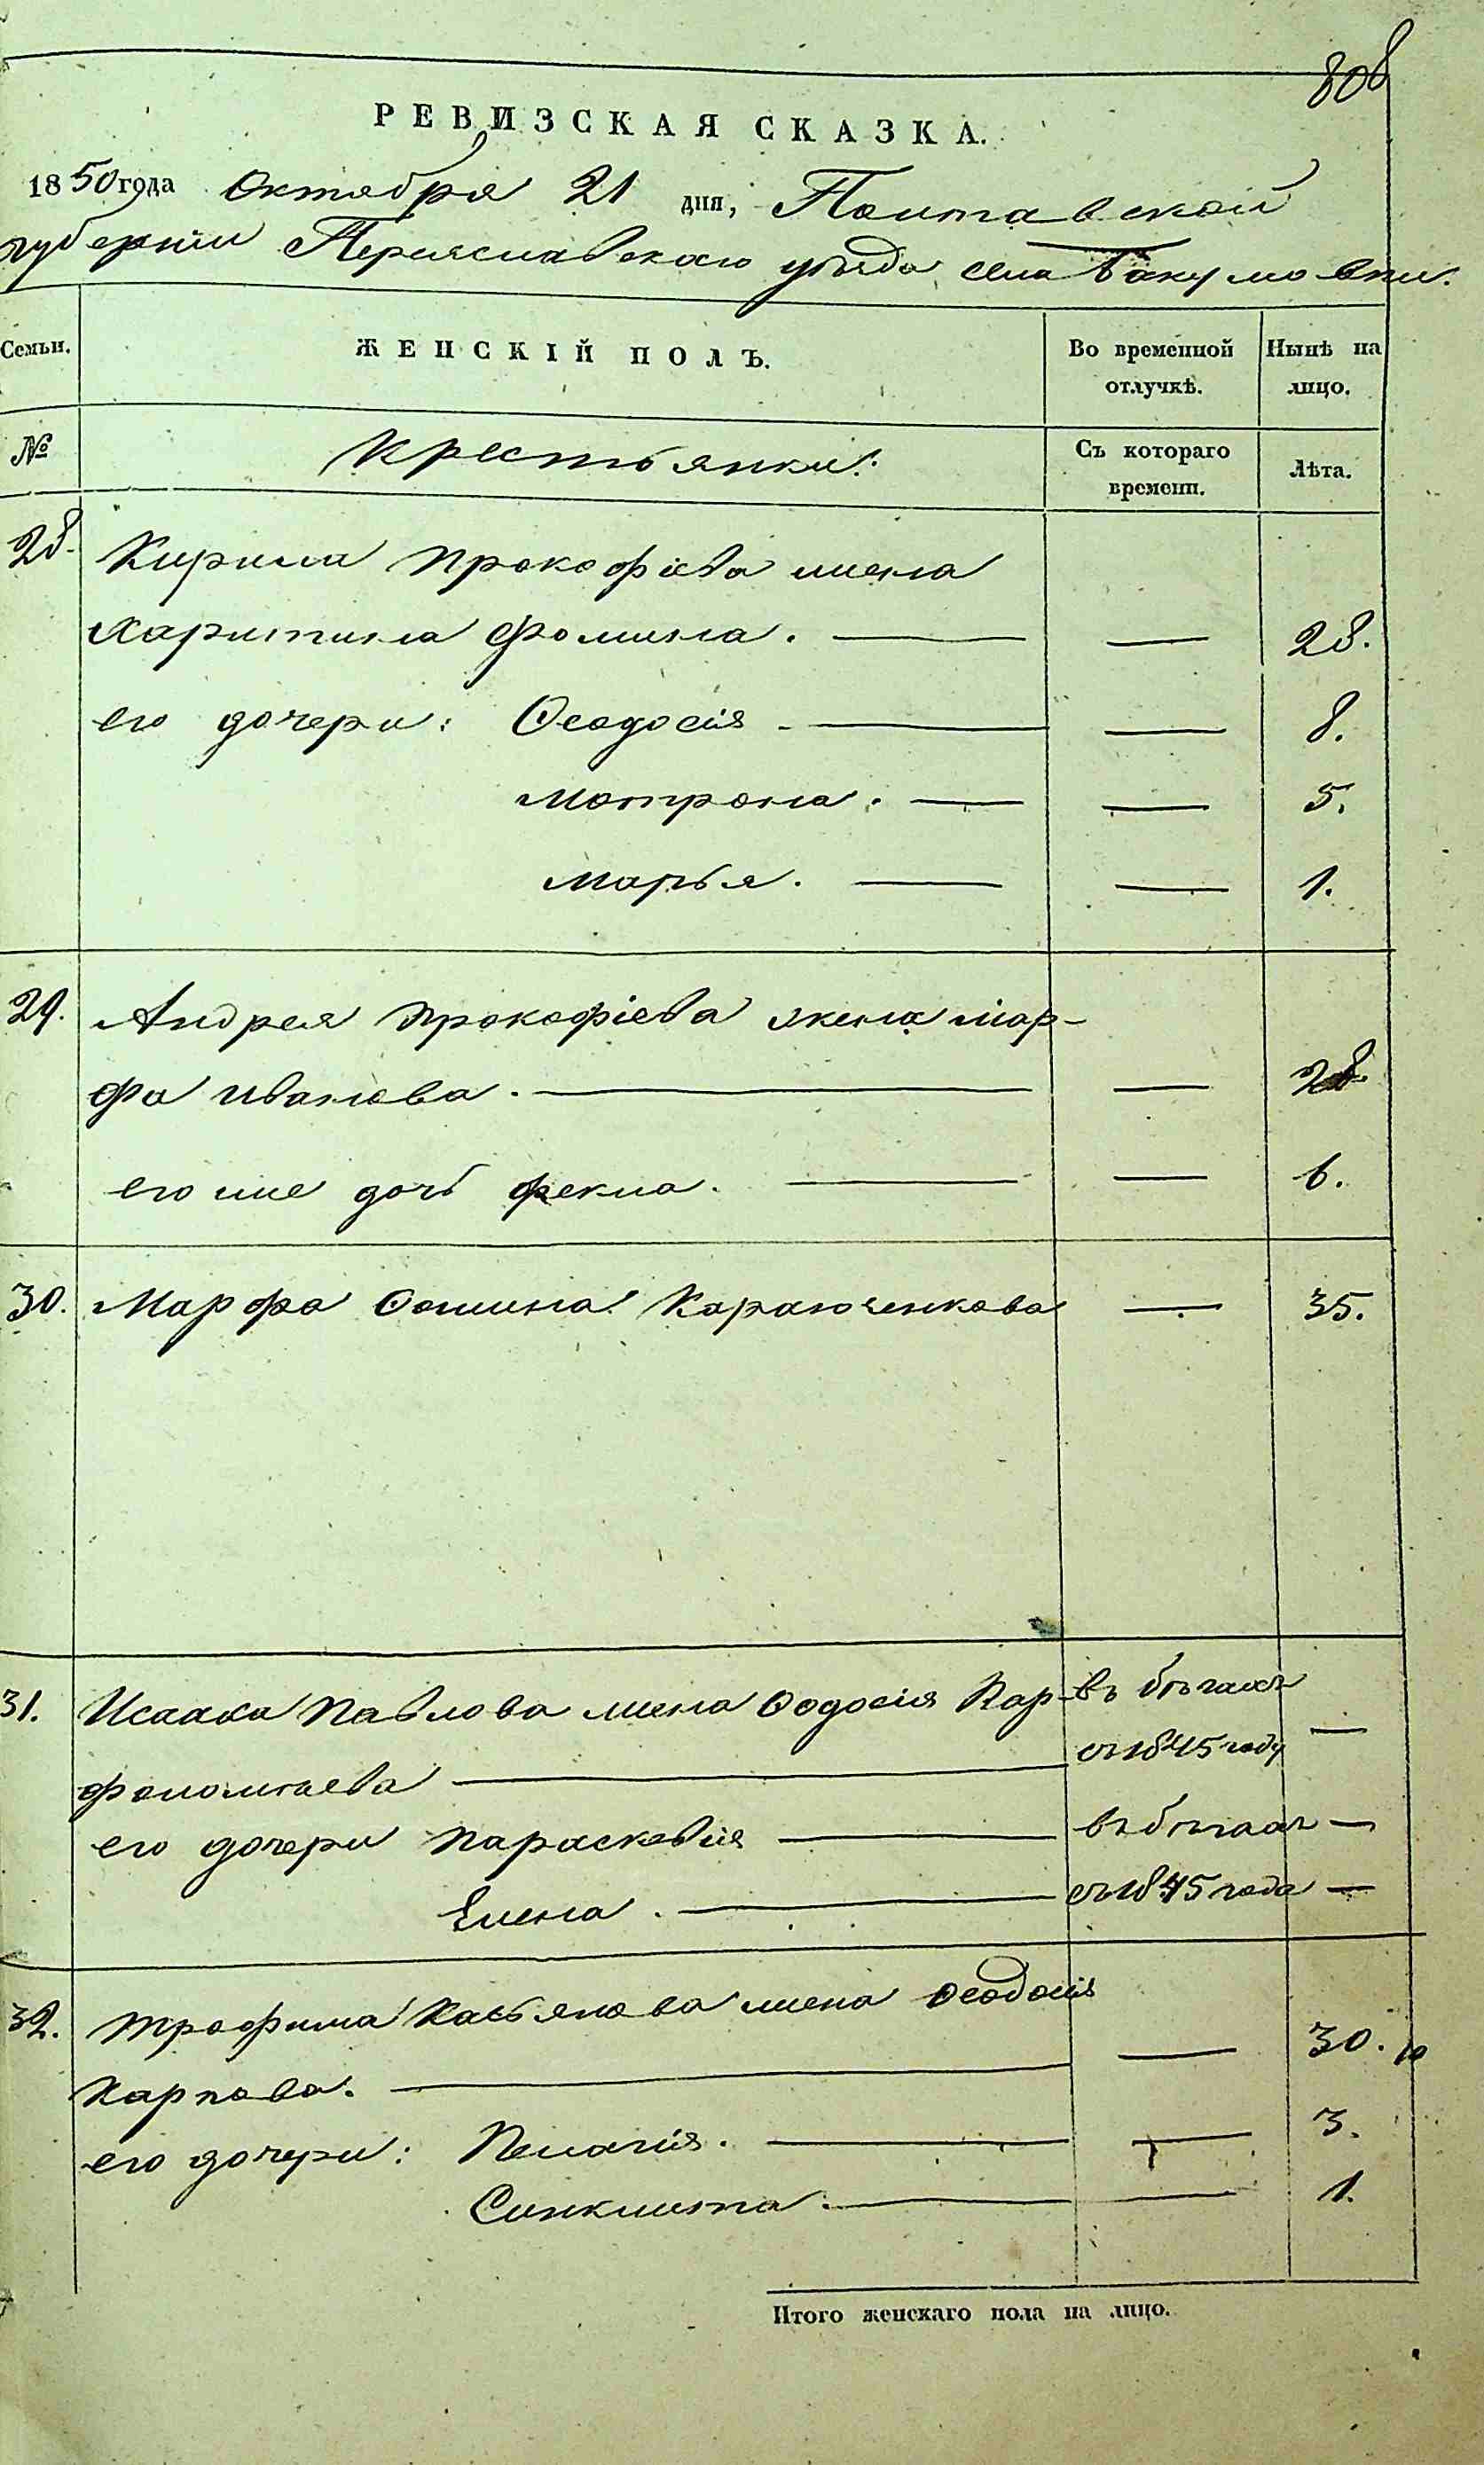 808
РЕВИЗСКАЯ СКАЗКА.
1850 года Октября 21 дня, Полтавской
губернии Переяславскаго уѣзда села Бакумовки.
Семьи. ЖЕНСКІЙ ПОЛЪ. Во временной отлучкѣ. Нынѣ на лицо.
№ Крестьянки: Съ котораго времени. Лѣта.
28. Кирила Прокофіева жена
Харитина Фомина. — — 28.
его дочери: Ѳеодосія — — 8.
Мотрона. — — 5.
Марья. — — 1.
29. Андрея Прокофіева жена Мар-
фа Иванова. — — 28.
его же дочь Фекла. — — 6.
30. Марфа Ѳомина — 35.
31. Исаака Павлова жена Ѳодосія Вар- въ бѣгахъ
фоломѣева — съ 1845 году —
его дочери Параскевія — въ бѣгахъ —
Елена. — съ 1845 года —
32. Трофима Касьянова жена Ѳеодосія
Карпова. — — 30.
его дочери: Пелагія. — — 3.
Синклита. — — 1.
Итого женскаго пола на лицо.